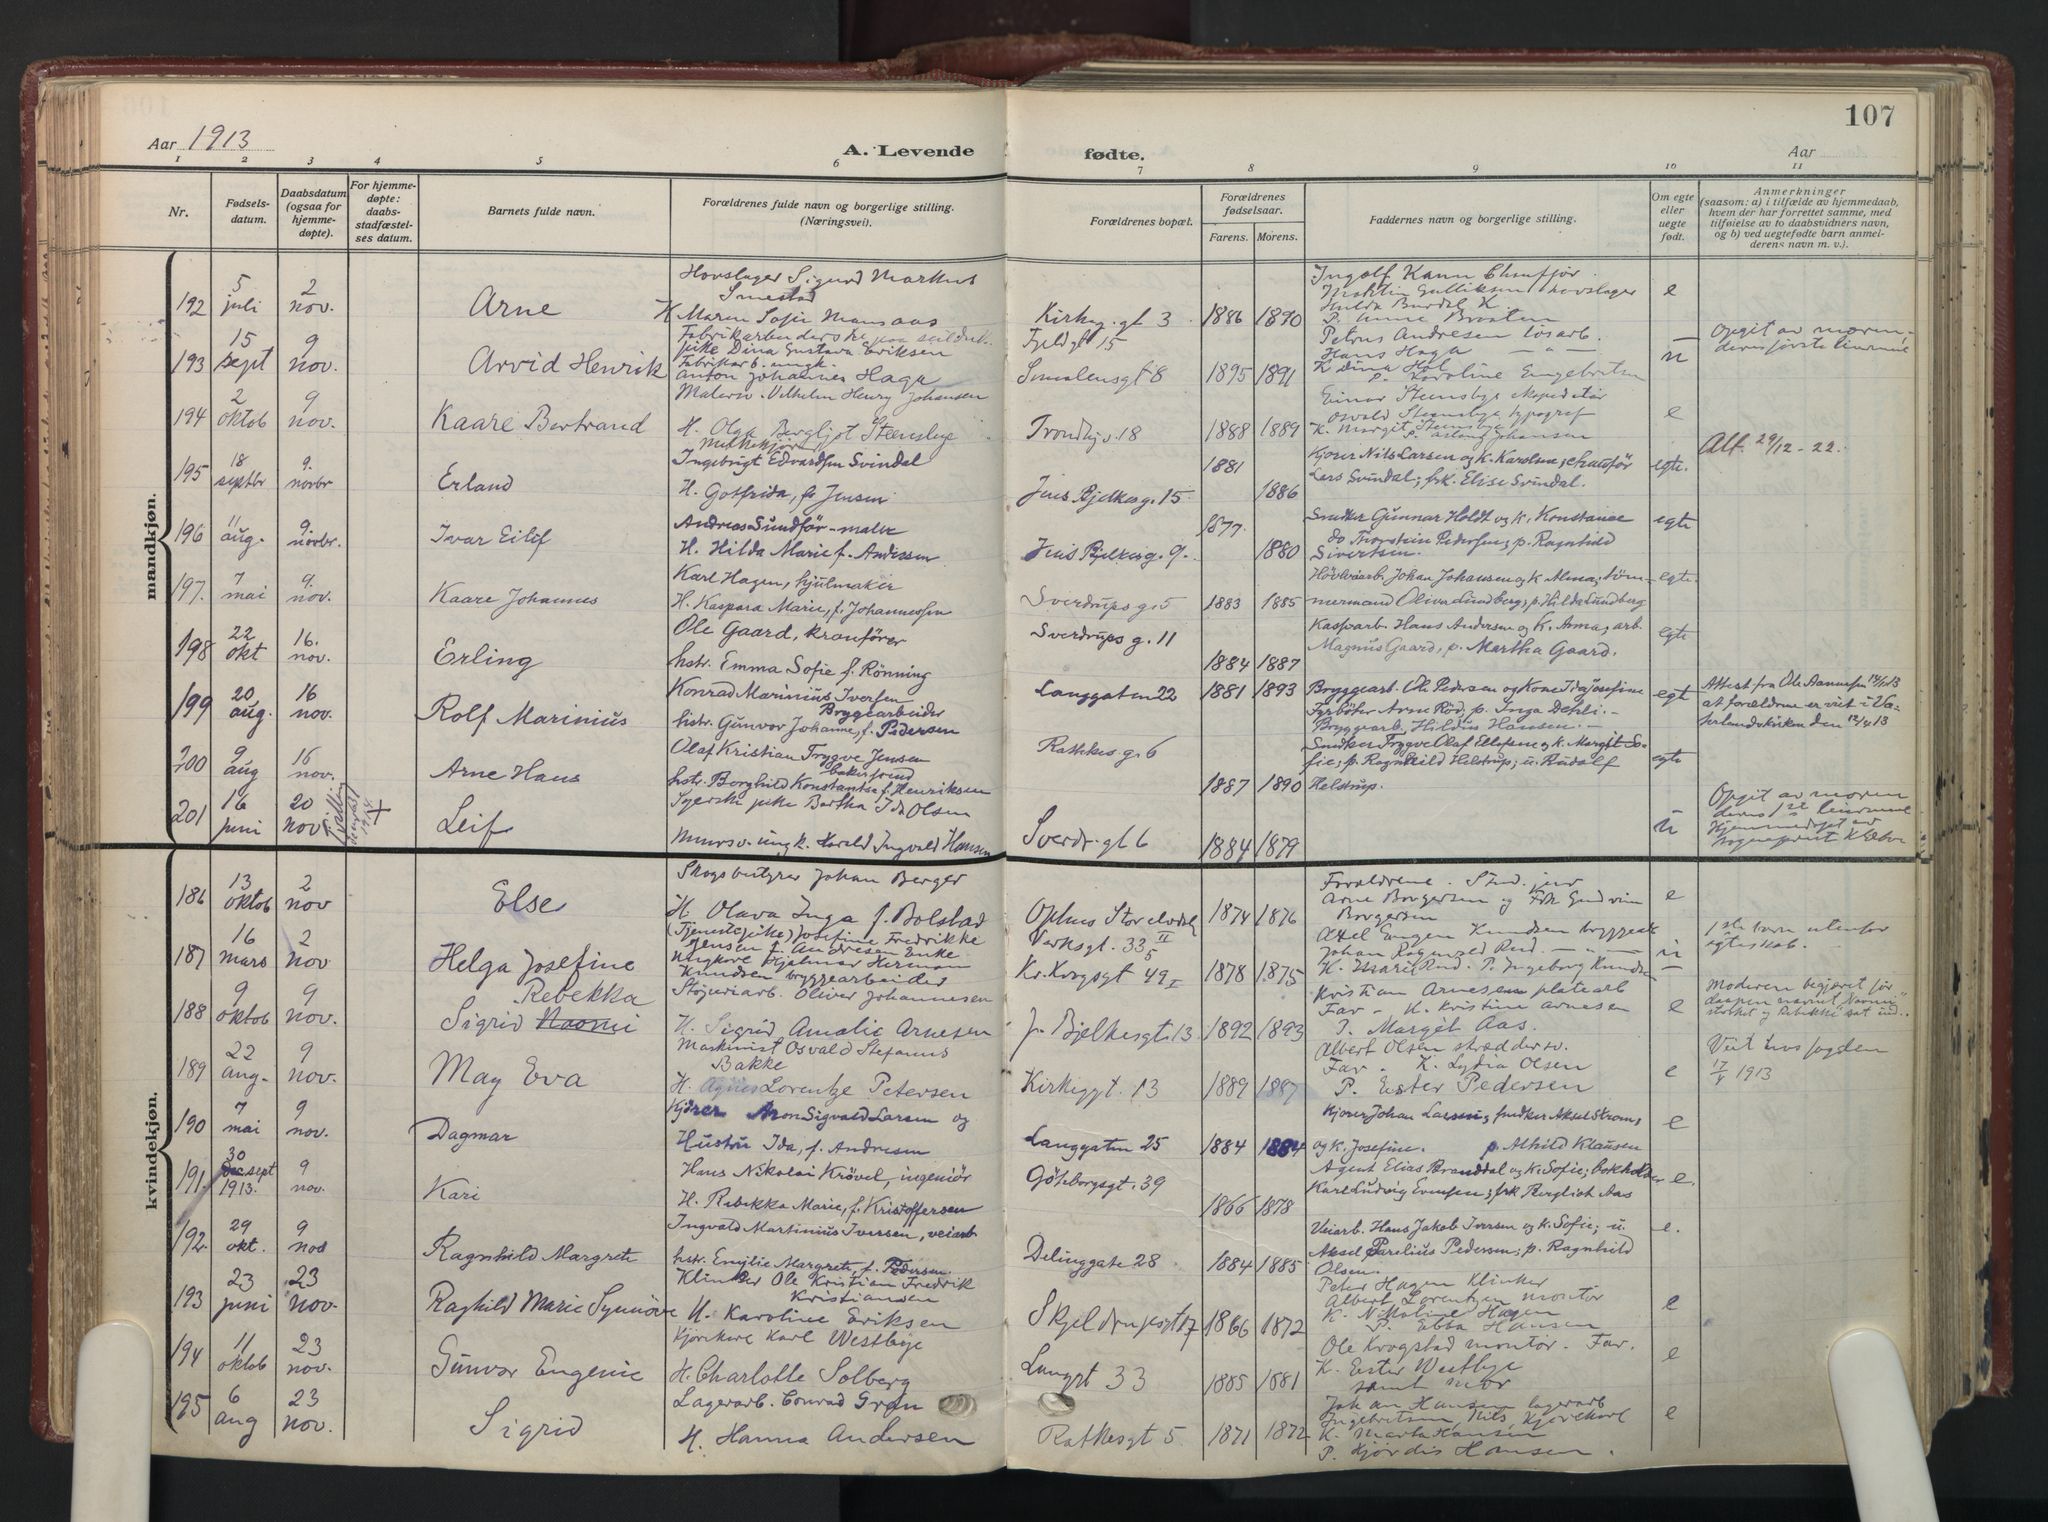 107
Aar 1913
A. Levende fødte.
Aar
1 2 3 4 5 6 7 8 9 10 11
Nr.
Fødsels-
datum.
Daabsdatum
(ogsaa for
hjemme-
døpte).
For hjemme-
døpte:
daabs-
stadfæstel-
ses datum.
Barnets fulde navn.
Forældrenes fulde navn og borgerlige stilling.
(Næringsvei).
Forældrenes bopæl.
Forældrenes
fødselsaar.
Farens. Morens.
Faddernes navn og borgerlige stilling.
Om egte
eller
uegte
født.
Anmerkninger
(saasom: a) i tilfælde av hjemmedaab,
hvem der har forrettet samme, med
tilføielse av to daabsvidners navn,
og b) ved uegtefødte barn anmel-
derens navn m. v.).
mandkjøn.
192
5 juli
2 nov.
Arne
Hovslager Sigurd Markus
Smestad
H. Maren Sofie
Kirkeg. gt 3
1886 1890
Ingolf Kann Chaufför
Martin Gulliksen hovslager
Hulda Burdal K.
P. Anna Braaten
e
193
15 sept
9 nov.
Arvid Henrik
Fabrikarbeiderske
pike Dina Gustava Eriksen
Fabrikarb. ungk.
Anton Johannes Haga
Fjeldgt 15
Smalensgt 8
1895 1891
Petrus Andresen løsarb.
Hans Haga — " —
K Dina Hol
P. Karoline Engebretsen
u
Opgit av moren
deres første
194
2 oktob
9 nov.
Kaare Bertrand
Malersv. Vilhelm Henry Johansen
H. Olga Bergliot Steensbye
Trondhj.v. 18
1888 1889
Einar Steensbye ekspeditør
Osvald Steensbye typograf
K. Margit Steensbye
P. Aslaug Johansen
e
195
18 septbr
9. novbr
Erland
Ingebrigt Edvardsen Svindal
H. Gotfrida, f. Jensen
Jens Bjelkesg. 15
1881 1886
Kjører Nils Larsen og K. Karoline; chaufför
Lars Svindal; frk. Elise Svindal.
egte.
Alt. 29/12-22.
196
11 aug.
9. novbr.
Ivar Eilif
Andreas Sundför – maler
H. Hilda Marie f. Andersen
Jens Bjelkesg. 9
1877. 1880
Snedker Gunnar Holdt og K. Konstanse
do Thorstein Pedersen; p. Ragnhild
Sivertsen.
egte
197.
7 mai
9. nov.
Kaare Johannes
Karl Hagen, hjulmaker
H. Kaspara Marie, f. Johannessen
Sverdrupsg. 5
1883 1885
Høvleriarb. Johan Johansen og K Alma; tøm-
mermand Oliver Lundberg; p. Hilda Lundberg
egte
198
22 okt
16. nov.
Erling
Ole Gaard, kranfører
hstr. Emma Sofie f. Rönning
Sverdrups g. 11
1884 1887
Kasfvarb. Hans Andersen og K. Anna; arb.
Magnus Gaard, p. Martha Gaard.
egte
199
20 aug.
16 nov.
Rolf Marinius
Konrad Marinius Iversen
Bryggearbeider
hstr. Gunvor Johanne, f. Pedersen
Langgaten 22
1881 1893
Bryggearb. Ole Pedersen og Kone Ida Josefine
Fyrbøter Arne Röd, p. Inga Dehli. –
Bryggearb. Hildus Hansen. –
egt
Attest fra Ole Aannesen 12/11 13
at forældrene er viet i Va-
terlandskirken den 12/4 13
200
9 aug
16 nov.
Arne Hans
Olaf Kristian Trygve Jensen
bakersvend
hstr. Borghild Konstanse f. Henriksen
Rathkes g. 6
1887 1890
Snedker Trygve Olaf Ellefsen og K. Margit So-
fie; p. Ragnhild Helstrup; u. Rudolf
Helstrup.
egte
201
16 juni
20 nov
Tvilling
Leif
Syerske pike Bertha Ida Olsen
Murersv. ungk. Harald Ingvald Hansen
Sverdr. gt 6
1884 1879
u
Opgit av moren
deres 1ste
Hjemmedøpt av
kvindekjøn.
186
13 oktob
2 nov
Else
Skogsbestyrer Johan Berger
H. Olava Inga f. Bolstad
Ophus Storelvdal
1874 1876
Forældrene. Stud. jur
Arne Borgersen og Frk Gudrun
Borgersen
e
187
16 mars
2 nov
Helga Josefine
(Tjenestepike) Josefine Fredrikke
Jensen f. Andresen Enke
Ungkarl Hjalmar Herman
Knudsen bryggearbeider
Verksgt. 33 II
Kr. Krogsgt 49 I
1878 1875
Axel Eugen Knudsen
Johan Rud. — " —
K. Marie Rud. P. Ingeborg Knudsen
u
1ste barn utenfor
egteskab.
188
9 oktob
9 nov.
Rebekka
Sigrid Naomi
Støperiarb. Oliver Johannesen
H. Sigrid Amalie Arnesen
J. Bjelkesgt. 13
1892 1893
Kristian Arnesen platearb
Far – K. Kristine Arnesen
J. Margit Aas.
e
Moderen begjæret før
daapen navnet "Naomi"
strøket og Rebekka sat ind.
189
22 aug.
9 nov.
May Eva
Maskinist Osvald Stefanus
Bakke
H. Agnes Lorentze Petersen
Kirkeggt. 13
1889 1887
Albert Olsen skræddersv.
Far. K. Lydia Olsen
P. Ester Pedersen
e
Viet hos fogden
17/4 1913
190
7 mai
9 nov.
Dagmar
Kjører Aron Sigvald Larsen og
Hustru Ida, f. Andresen
Langgaten 25
1884 1884
Kjører Johan Larsen; snedker Aksel Stroms
og k. Josefine. p. Alhild Klausen
e
191.
30 sept
1913.
9 nov.
Kari
Hans Nikolai Krövel, ingeniör
H. Rebekka Marie, f. Kristoffersen
Göteborggt. 39
1866 1878
Agent Elias Branddal og K. Sofie; bokholder
Karl Ludvig Evensen; frk Bergliot Aas
e.
192.
29 okt.
9 nov
Ragnhild Margrete
Ingvald Martinius Iversen, veiarb
hstr. Emilie Margrete, f. Pedersen.
Delinggate 28
1884 1885
Veiarb. Hans Jakob Iversen og k. Sofie; u.
Aksel Parelius Pedersen; p. Ragnhild
Olsen.
e.
193
23 juni
23 nov.
Raghild Marie Synnöve
Klinker Ole Kristian Fredrik
Kristiansen
H. Karoline Eriksen
Skjeldrupsgt 17
1866 1872
Peter Hagen Klinker
Albert Lorentzen montör
K. Nikoline Hagen
P. Ebba Hansen
e
194
11 oktob
23 nov.
Gunvor Engenie
Kjörekarl Karl Westbye
H. Charlotte Solberg
Langgt 33
1885 1881
Ole Krogstad montör. Far.
K. Ester Westbye
samt mor
e
195
6 aug
23 nov.
Sigrid
Lagerarb. Conrad Grøn
H. Hanna Andersen
Ratkesgt 5.
1871 1872
Johan Hansen lagerarb
Ingebretsen Nils, Kjörekarl
K. Marta Hansen
P. Hjördis Hansen.
e